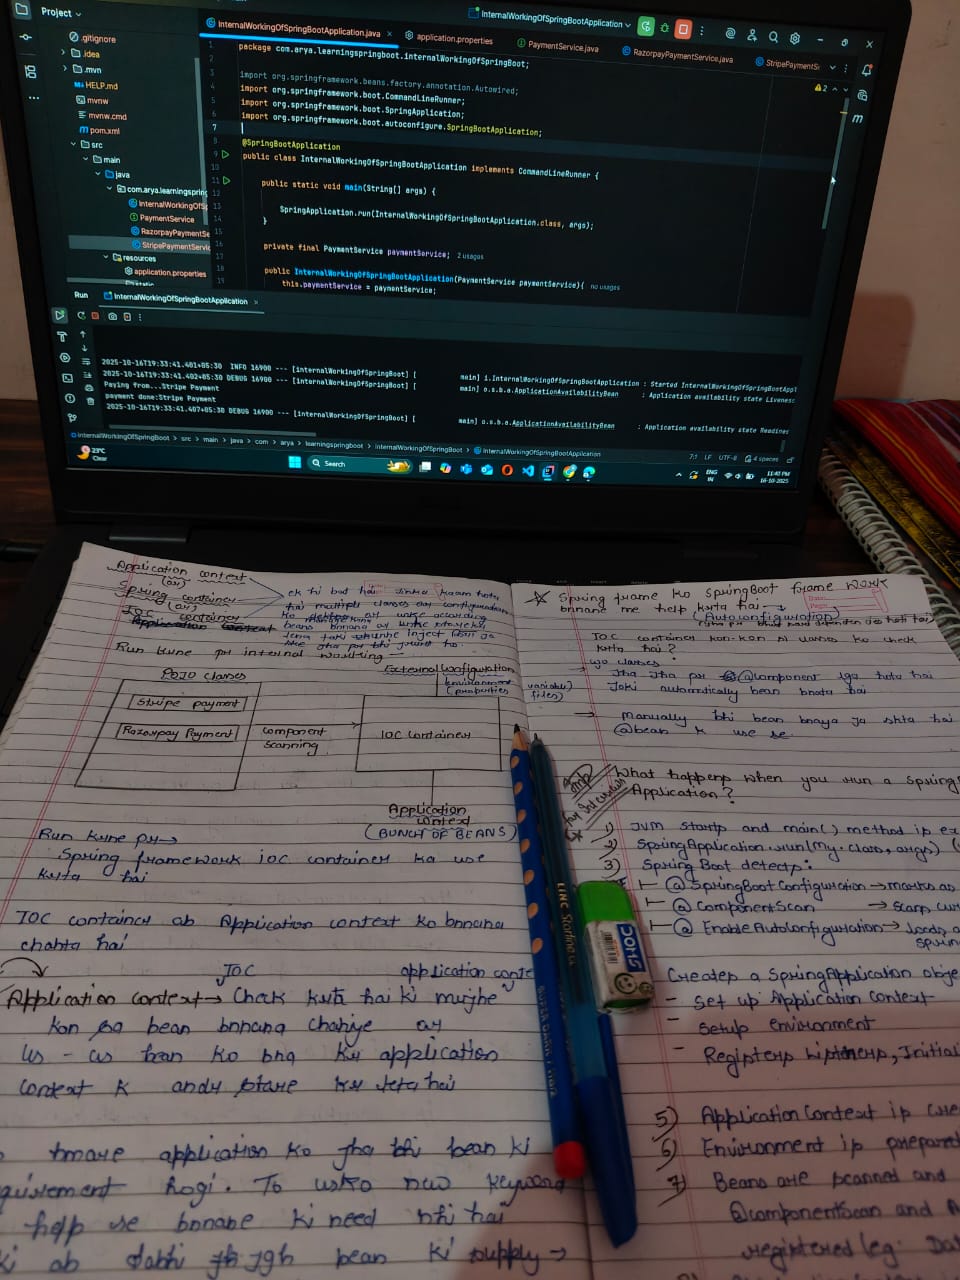 Project
InternalWorkingOfSpringBootApplication
InternalWorkingOfSpringBootApplication.java
application.properties
PaymentService.java
RazorpayPaymentService.java
StripePaymentS
.gitignore
.idea
.mvn
HELP.md
mvnw
mvnw.cmd
pom.xml
src
main
java
com.arya.learningspring
InternalWorkingOf
PaymentService
RazorpayPaymentSe
StripePaymentServic
resources
application.properties
static
1 package com.arya.learningspringboot.internalWorkingOfSpringBoot;
2
3 import org.springframework.beans.factory.annotation.Autowired;
4 import org.springframework.boot.CommandLineRunner;
5 import org.springframework.boot.SpringApplication;
6 import org.springframework.boot.autoconfigure.SpringBootApplication;
7
8 @SpringBootApplication
9 public class InternalWorkingOfSpringBootApplication implements CommandLineRunner {
10
11 public static void main(String[] args) {
12
13 SpringApplication.run(InternalWorkingOfSpringBootApplication.class, args);
14 }
15
16 private final PaymentService paymentService; 2 usages
17
18 public InternalWorkingOfSpringBootApplication(PaymentService paymentService){ no usages
19 this.paymentService = paymentService;
2
Run InternalWorkingOfSpringBootApplication
2025-10-16T19:33:41.401+05:30 INFO 16900 --- [internalWorkingOfSpringBoot] [ main] i.InternalWorkingOfSpringBootApplication : Started InternalWorkingOfSpringBootAppl
2025-10-16T19:33:41.402+05:30 DEBUG 16900 --- [internalWorkingOfSpringBoot] [ main] o.s.b.a.ApplicationAvailabilityBean : Application availability state Livenes
Paying from...Stripe Payment
payment done:Stripe Payment
2025-10-16T19:33:41.407+05:30 DEBUG 16900 --- [internalWorkingOfSpringBoot] [ main] o.s.b.a.ApplicationAvailabilityBean : Application availability state Readines
InternalWorkingOfSpringBoot > src > main > java > com > arya > learningspringboot > internalWorkingOfSpringBoot > InternalWorkingOfSpringBootApplication
7:1 LF UTF-8 4 spaces
23°C
Clear
Search
ENG
IN
11:40 PM
16-10-2025
Application context
(or)
Spring container
(or)
IOC container
Application Context
ek hi baat hai jinka kaam hota
hai multiple classes or configuration
Run krne pr internal working
POJO classes
Stripe payment
Razorpay Payment
component
scanning
External Configuration
(properties
files)
IOC container
Application
context
(BUNCH OF BEANS)
Run krne pr →
Spring framework ioc container ka use
krta hai
IOC container ab Application context ko bnnana
chahta hai
IOC application conte
Application context → Check krta hai ki mujhe
kon sa bean bnnana chahiye or
us - us bean ko bna kr application
context k andr store kr leta hai
hmare application ko jha bhi bean ki
quirement hogi. To usko new keyword
help se bnnane ki need nhi hai
ki ab jabhi jis jgh bean ki supply →
Spring frame ko SpringBoot frame work
bnnane me help krta hai →
(Autoconfiguration)
IOC container kon-kon si classes ko check
krta hai?
wo classes:
→ Jha Jha pr @component lga hota hai
Joki automatically bean bnata hai
→ manually bhi bean bnaya ja skta hai
@bean k use se
Imp
for Interviews
What happens when you run a Spring
Application?
1) JVM starts and main() method is ex
2) SpringApplication.run(my.class, args)
3) Spring Boot detects:
@SpringBootConfiguration → marks as
@ComponentScan → Scans cur
@EnableAutoConfiguration → loads a
Spring
Creates a SpringApplication obje
- Set up Application Context
- Setup environment
- Registers Listeners, Initial
5) ApplicationContext is cre
6) Environment is prepared
7) Beans are scanned and
@componentScan and A
registered (eg: Dat
LINC Starline
DOMS